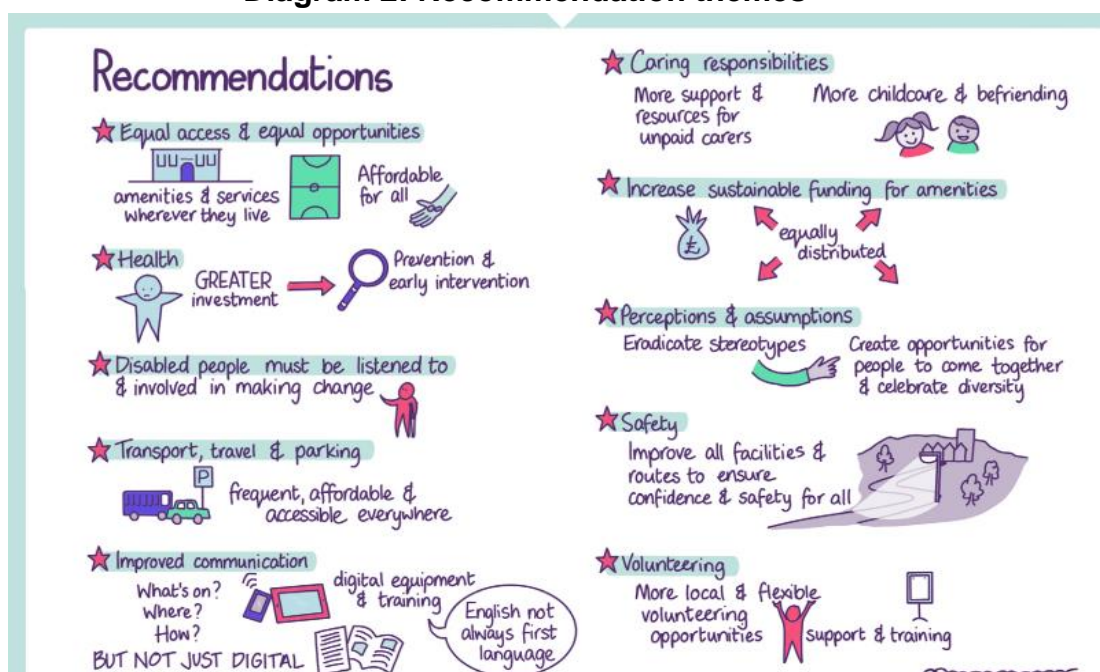 Diagram 2: Recommendation themes
Recommendations
Equal access & equal opportunities
amenities & services
wherever they live
Affordable
for all
Health
GREATER
investment
Prevention &
early intervention
Disabled people must be listened to
& involved in making change
Transport, travel & parking
P
frequent, affordable &
accessible everywhere
Improved communication
What's on?
Where?
How?
BUT NOT JUST DIGITAL
digital equipment
& training
English not
always first
language
Caring responsibilities
More support &
resources for
unpaid carers
More childcare & befriending
Increase sustainable funding for amenities
£
equally
distributed
Perceptions & assumptions
Eradicate stereotypes
Create opportunities for
people to come together
& celebrate diversity
Safety
Improve all facilities &
routes to ensure
confidence & safety for all
Volunteering
More local & flexible
volunteering
opportunities
support & training